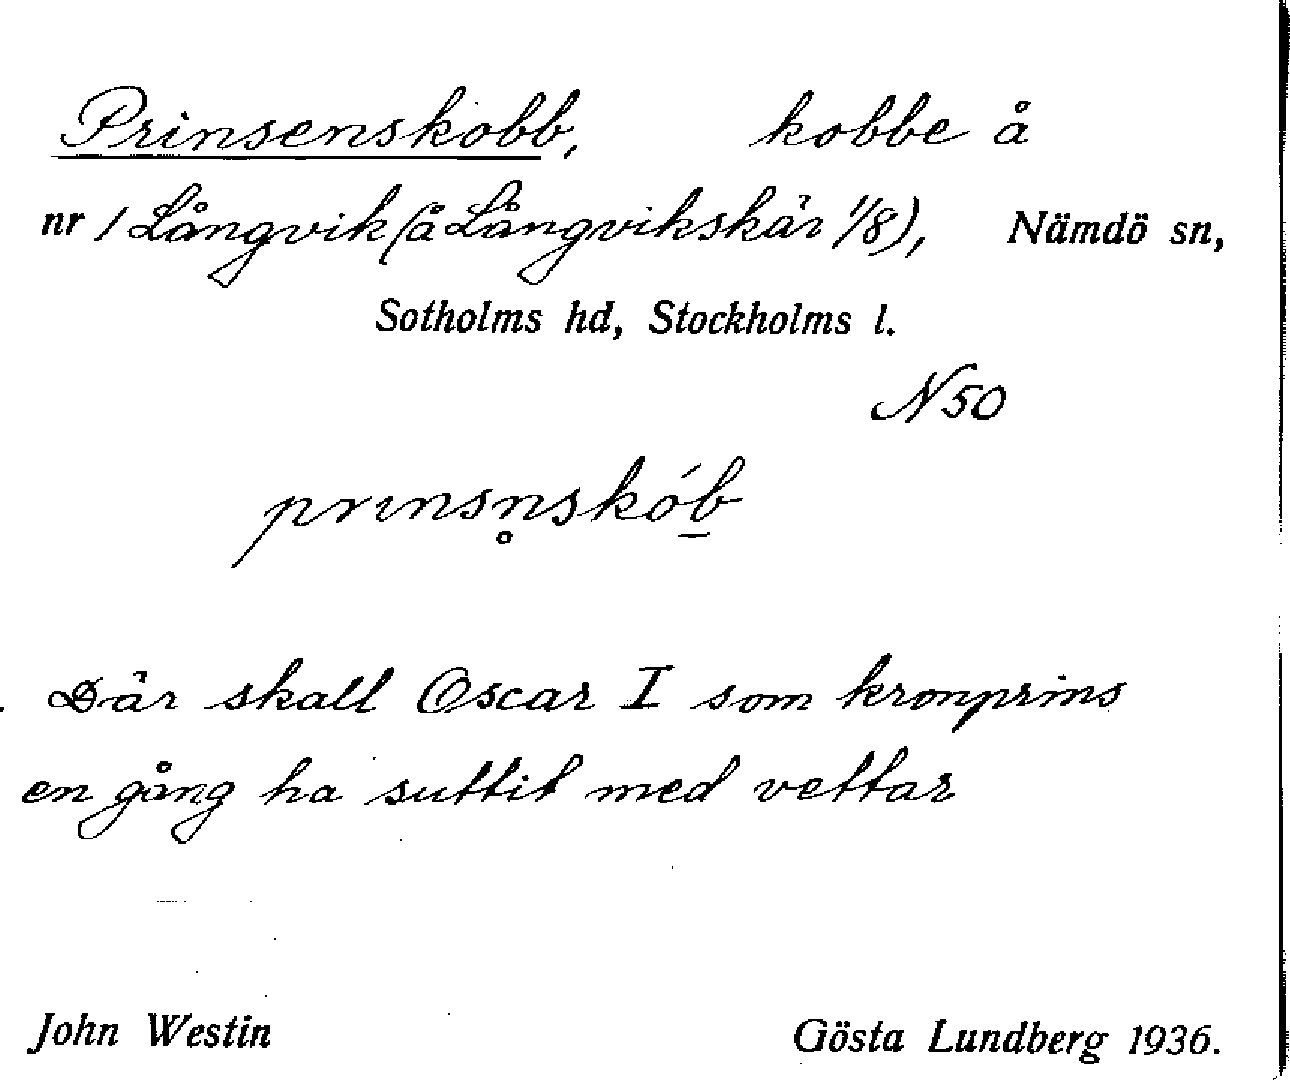 Prinsenskobb, kobbe å
nr 1 Långvik (å Långvikskär 1/8), Nämdö sn,
Sotholms hd, Stockholms l.
N 50
prınsn̥skób̲
Där skall Oscar I som kronprins
en gång ha suttit med vettar
John Westin Gösta Lundberg 1936.